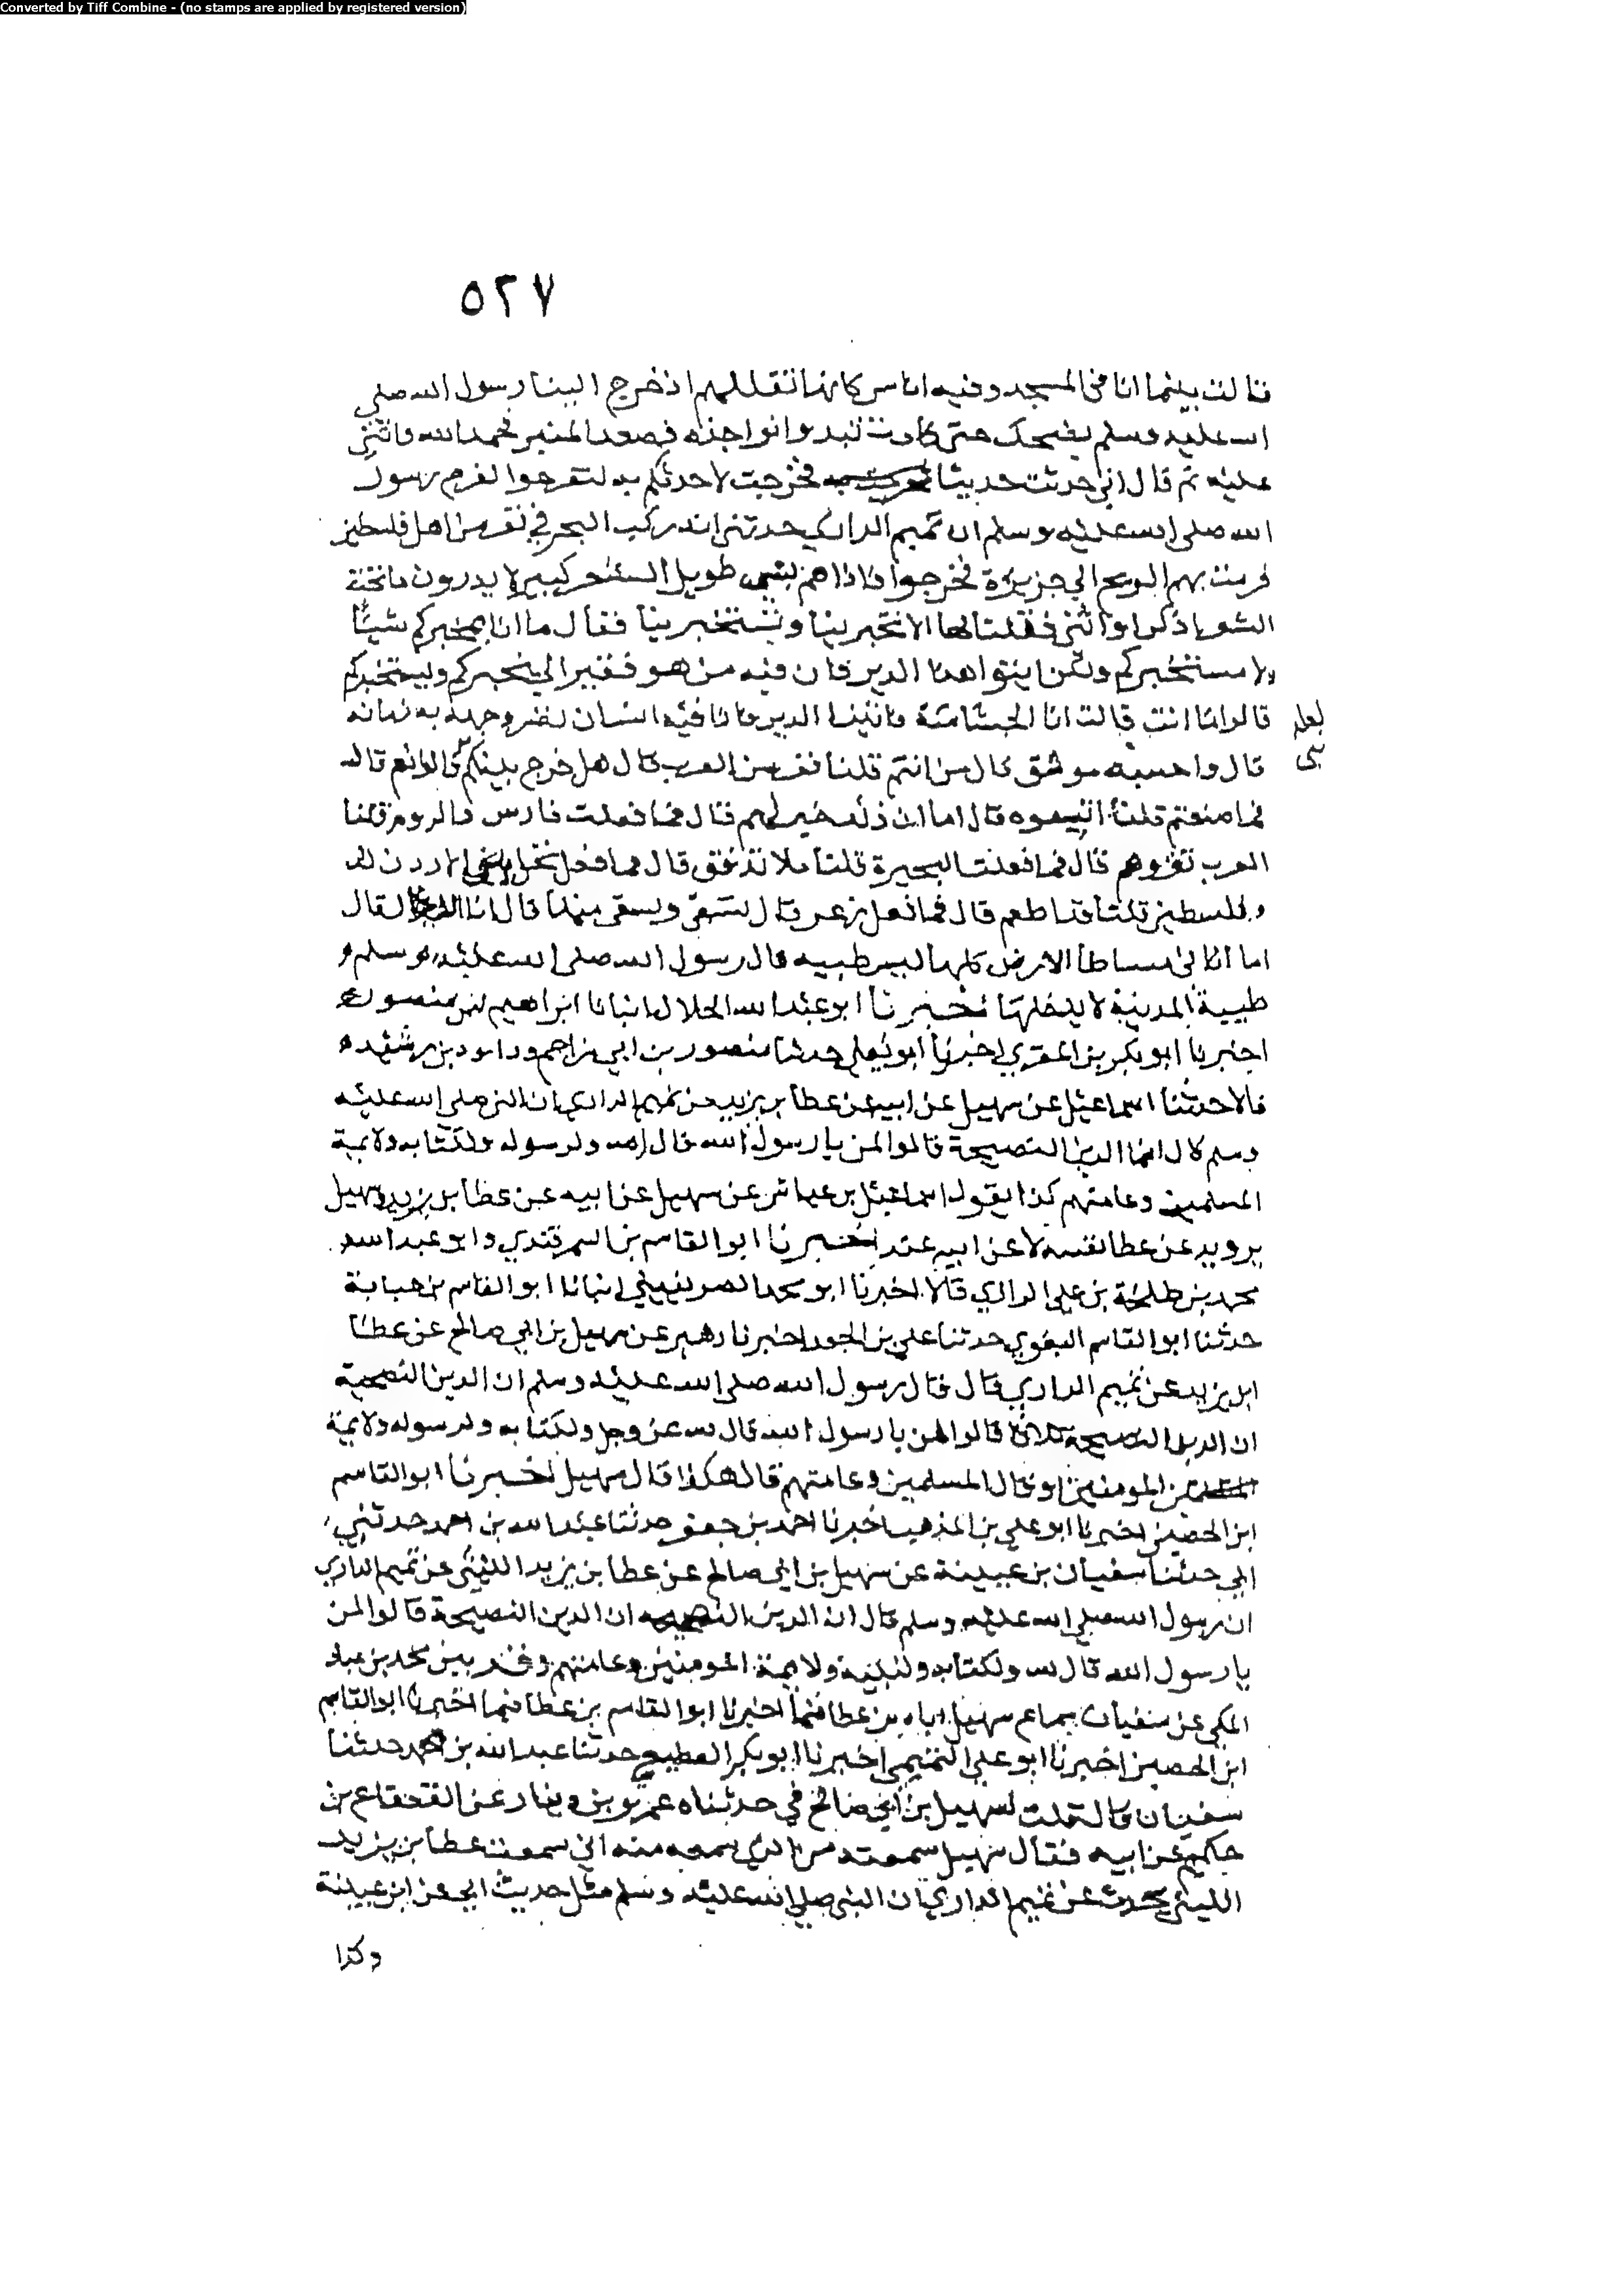 Converted by Tiff Combine - (no stamps are applied by registered version)
٥٢٧
قالت بينما انا في المسجد وفيه اناس كانها تقللهم اذ خرج الينا رسول الله صلى
الله عليه وسلم يضحك حتى كادت تبدوا نواجذه فصعد المنبر فحمد الله واثنى
عليه ثم قال اني حدثت حديثا فخرجت لاحدثكم به لتفرحوا لفرح رسول
الله صلى الله عليه وسلم ان تميم الداري حدثني انه ركب البحر في نفر من اهل فلسطين
فرمت بهم الريح الي جزيرة فخرجوا فاذا هم بشي طويل الشعر كبير لا يدرون ما تحت
الشعر اذكر او انثى فقلنا لها الا تخبرينا وتستخبرينا فقال ما انا بمخبركم شيئا
ولا مستخبركم ولكن ايتوا هذا الدير فان فيه من هو فقير الي يخبركم ويستخبركم
قالوا ما انت قالت انا الجساسة فاتينا الدير فاذا فيه انسان نضر وجهه به زمانه
لعله
قال واحسبه موثق قال من انتم قلنا نفر من العرب قال هل خرج نبيكم قالوا نعم قال
فما صنعتم قلنا اتبعوه قال اما ان ذلك خير لهم قال فما فعلت فارس والروم قلنا
العرب تغزوهم قال فما فعلت البحيرة قلنا ملا تدفق قال فما فعل نخل بين الاردن
وفلسطين قلنا قد اطعم قال فما فعل زغر قال تسقي ويسقى منها قال انا الدجال قال
اما انا فى ساطا الارض كلها ليس طيبه قال رسول الله صلى الله عليه وسلم و
طيبة المدينة لا يدخلها اخبرنا ابو عبد الله الخلال انبانا ابراهيم بن منصور
اخبرنا ابو بكر بن المقري اخبرنا ابو يعلى حدثنا منصور بن ابي مزاحم وداود بن رشيد
قالا حدثنا اسماعيل عن سهيل عن ابيه عن عطا بن يزيد عن تميم الداري ان النبي صلى الله عليه
وسلم قال انما الدين النصيحة قالوا لمن يا رسول الله قال لله ولرسوله ولكتابه ولايمة
المسلمين وعامتهم كذا يقول اسماعيل بن عياش عن سهيل عن ابيه عن عطا بن يزيد وسهيل
يرويه عن عطا نفسه لا عن ابيه عنه اخبرنا ابو القاسم بن السمرقندي وابو عبد الله
محمد بن طلحة بن علي الرازي قالا اخبرنا ابو محمد الصريفيني انبانا ابو القاسم بن حبابة
حدثنا ابو القاسم البغوي حدثنا علي بن الجعد اخبرنا زهير عن سهيل بن ابي صالح عن عطا
ابن يزيد عن تميم الداري قال قال رسول الله صلى الله عليه وسلم ان الدين النصيحة
ان الدين النصيحة ثلاثا قالوا لمن يا رسول الله قال لله عز وجل ولكتابه ولرسوله ولايمة
المومنين او قال المسلمين وعامتهم قال هكذا قال سهيل اخبرنا ابو القاسم
ابن الحصين اخبرنا ابو علي بن المذهب اخبرنا احمد بن جعفر حدثنا عبد الله بن احمد حدثني
ابي حدثنا سفيان بن عيينة عن سهيل بن ابي صالح عن عطا بن يزيد الليثي عن تميم الداري
ان رسول الله صلى الله عليه وسلم قال ان الدين النصيحه ان الدين النصيحة قالوا لمن
يا رسول الله قال لله ولكتابه ولنبيه ولايمة المومنين وعامتهم وقد بين محمد بن عباد
المكي عن سفيان سماع سهيل اياه من عطا فيما اخبرنا ابو القاسم بن عطا فيما اخبرنا ابو القاسم
ابن الحصين اخبرنا ابو علي التميمي اخبرنا ابو بكر القطيعي حدثنا عبد الله بن احمد حدثنا
سفيان قال قلت لسهيل بن ابي صالح في حدثناه عمرو بن دينار عن القعقاع بن
حكيم عن ابيه فقال سهيل سمعته من الذي سمعه منه ابي سمعت عطا بن يزيد
الليثي يحدث عن تميم الداري ان النبي صلى الله عليه وسلم مثل حديث ابي عن ابن عيينة
وكذا